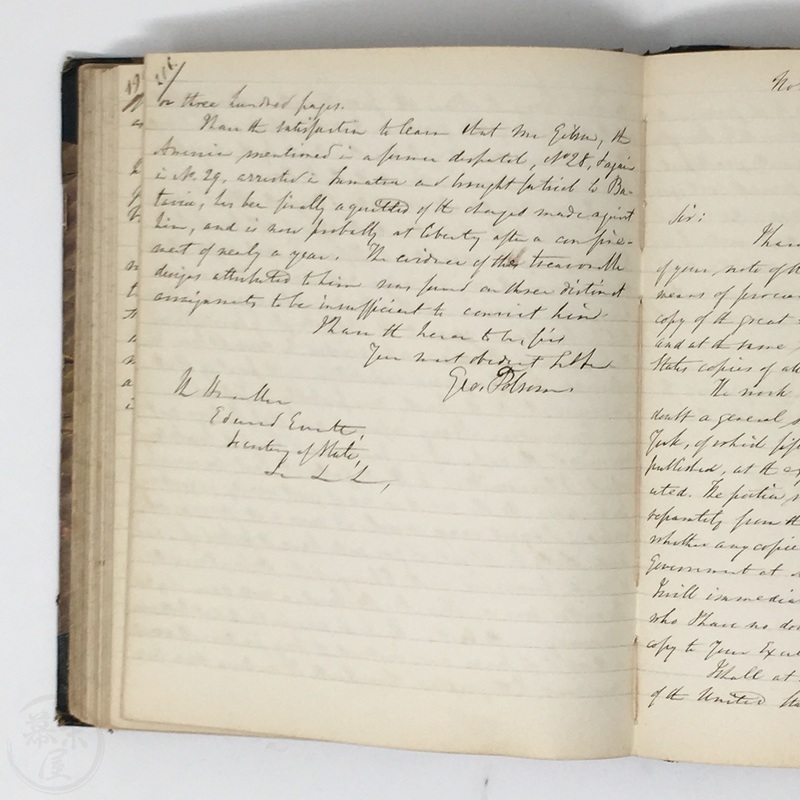 or three hundred pages.
I have the satisfaction to learn that Mr Gibson, the
American mentioned in a former despatch, No 28, & again
in No. 29, arrested in Sumatra and brought for trial to Ba-
tavia, has been finally acquitted of the charges made against
him, and is now probably at liberty after a confine-
ment of nearly a year. The evidence of the treasonable
designs attributed to him was found on three distinct
assignments to be insufficient to convict him.
I have the honor to be, Sir,
Your most obedient
Geo. Folsom.
Edward Everett,
Secretary of State,
Sir:
I have
of your note of th
means of procur
copy of the great
and at the same
States copies of al
The work
doubt a general
York, of which fif
published, at the ex
The portion
separately from th
whether any copie
Government at
I will immedia
who I have no do
copy to Your Exce
I shall at
of the United Sta